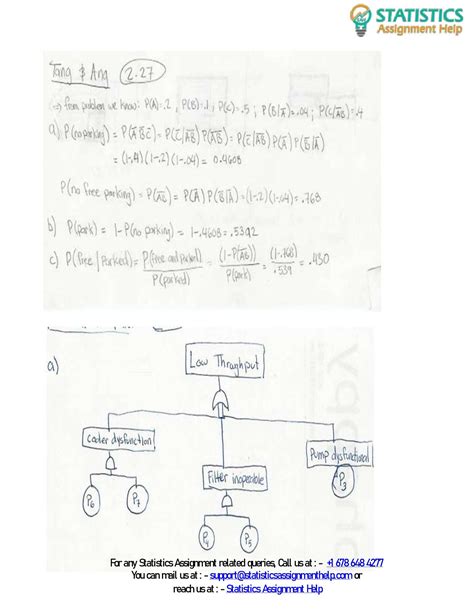 STATISTICS
Assignment Help
Tang & Ang 2.27
⇒ from problem we know: P(A)=.2, P(B)=.1, P(C)=.5; P(B|Ā)=.04; P(C|A̅B̅)=.4
a) P(no parking) = P(ĀB̄C̄) = P(C̄|A̅B̅) P(A̅B̅) = P(C̄|A̅B̅) P(Ā) P(B̄|Ā)
= (1-.4)(1-.2)(1-.04) = 0.4608
P(no free parking) = P(A̅B̅) = P(Ā) P(B̄|Ā) = (1-.2)(1-.04) = .768
b) P(park) = 1-P(no parking) = 1-.4608 = .5392
c) P(free | parked) = P(free and parked) / P(parked) = (1-P(A̅B̅)) / P(park) = (1-.768) / .539 = .430
a)
Low Throughput
Cooler dysfunction
Filter inoperable
Pump dysfunctional
P6
P7
P4
P5
P3
For any Statistics Assignment related queries, Call us at : - +1 678 648 4277
You can mail us at : - support@statisticsassignmenthelp.com or
reach us at : - Statistics Assignment Help